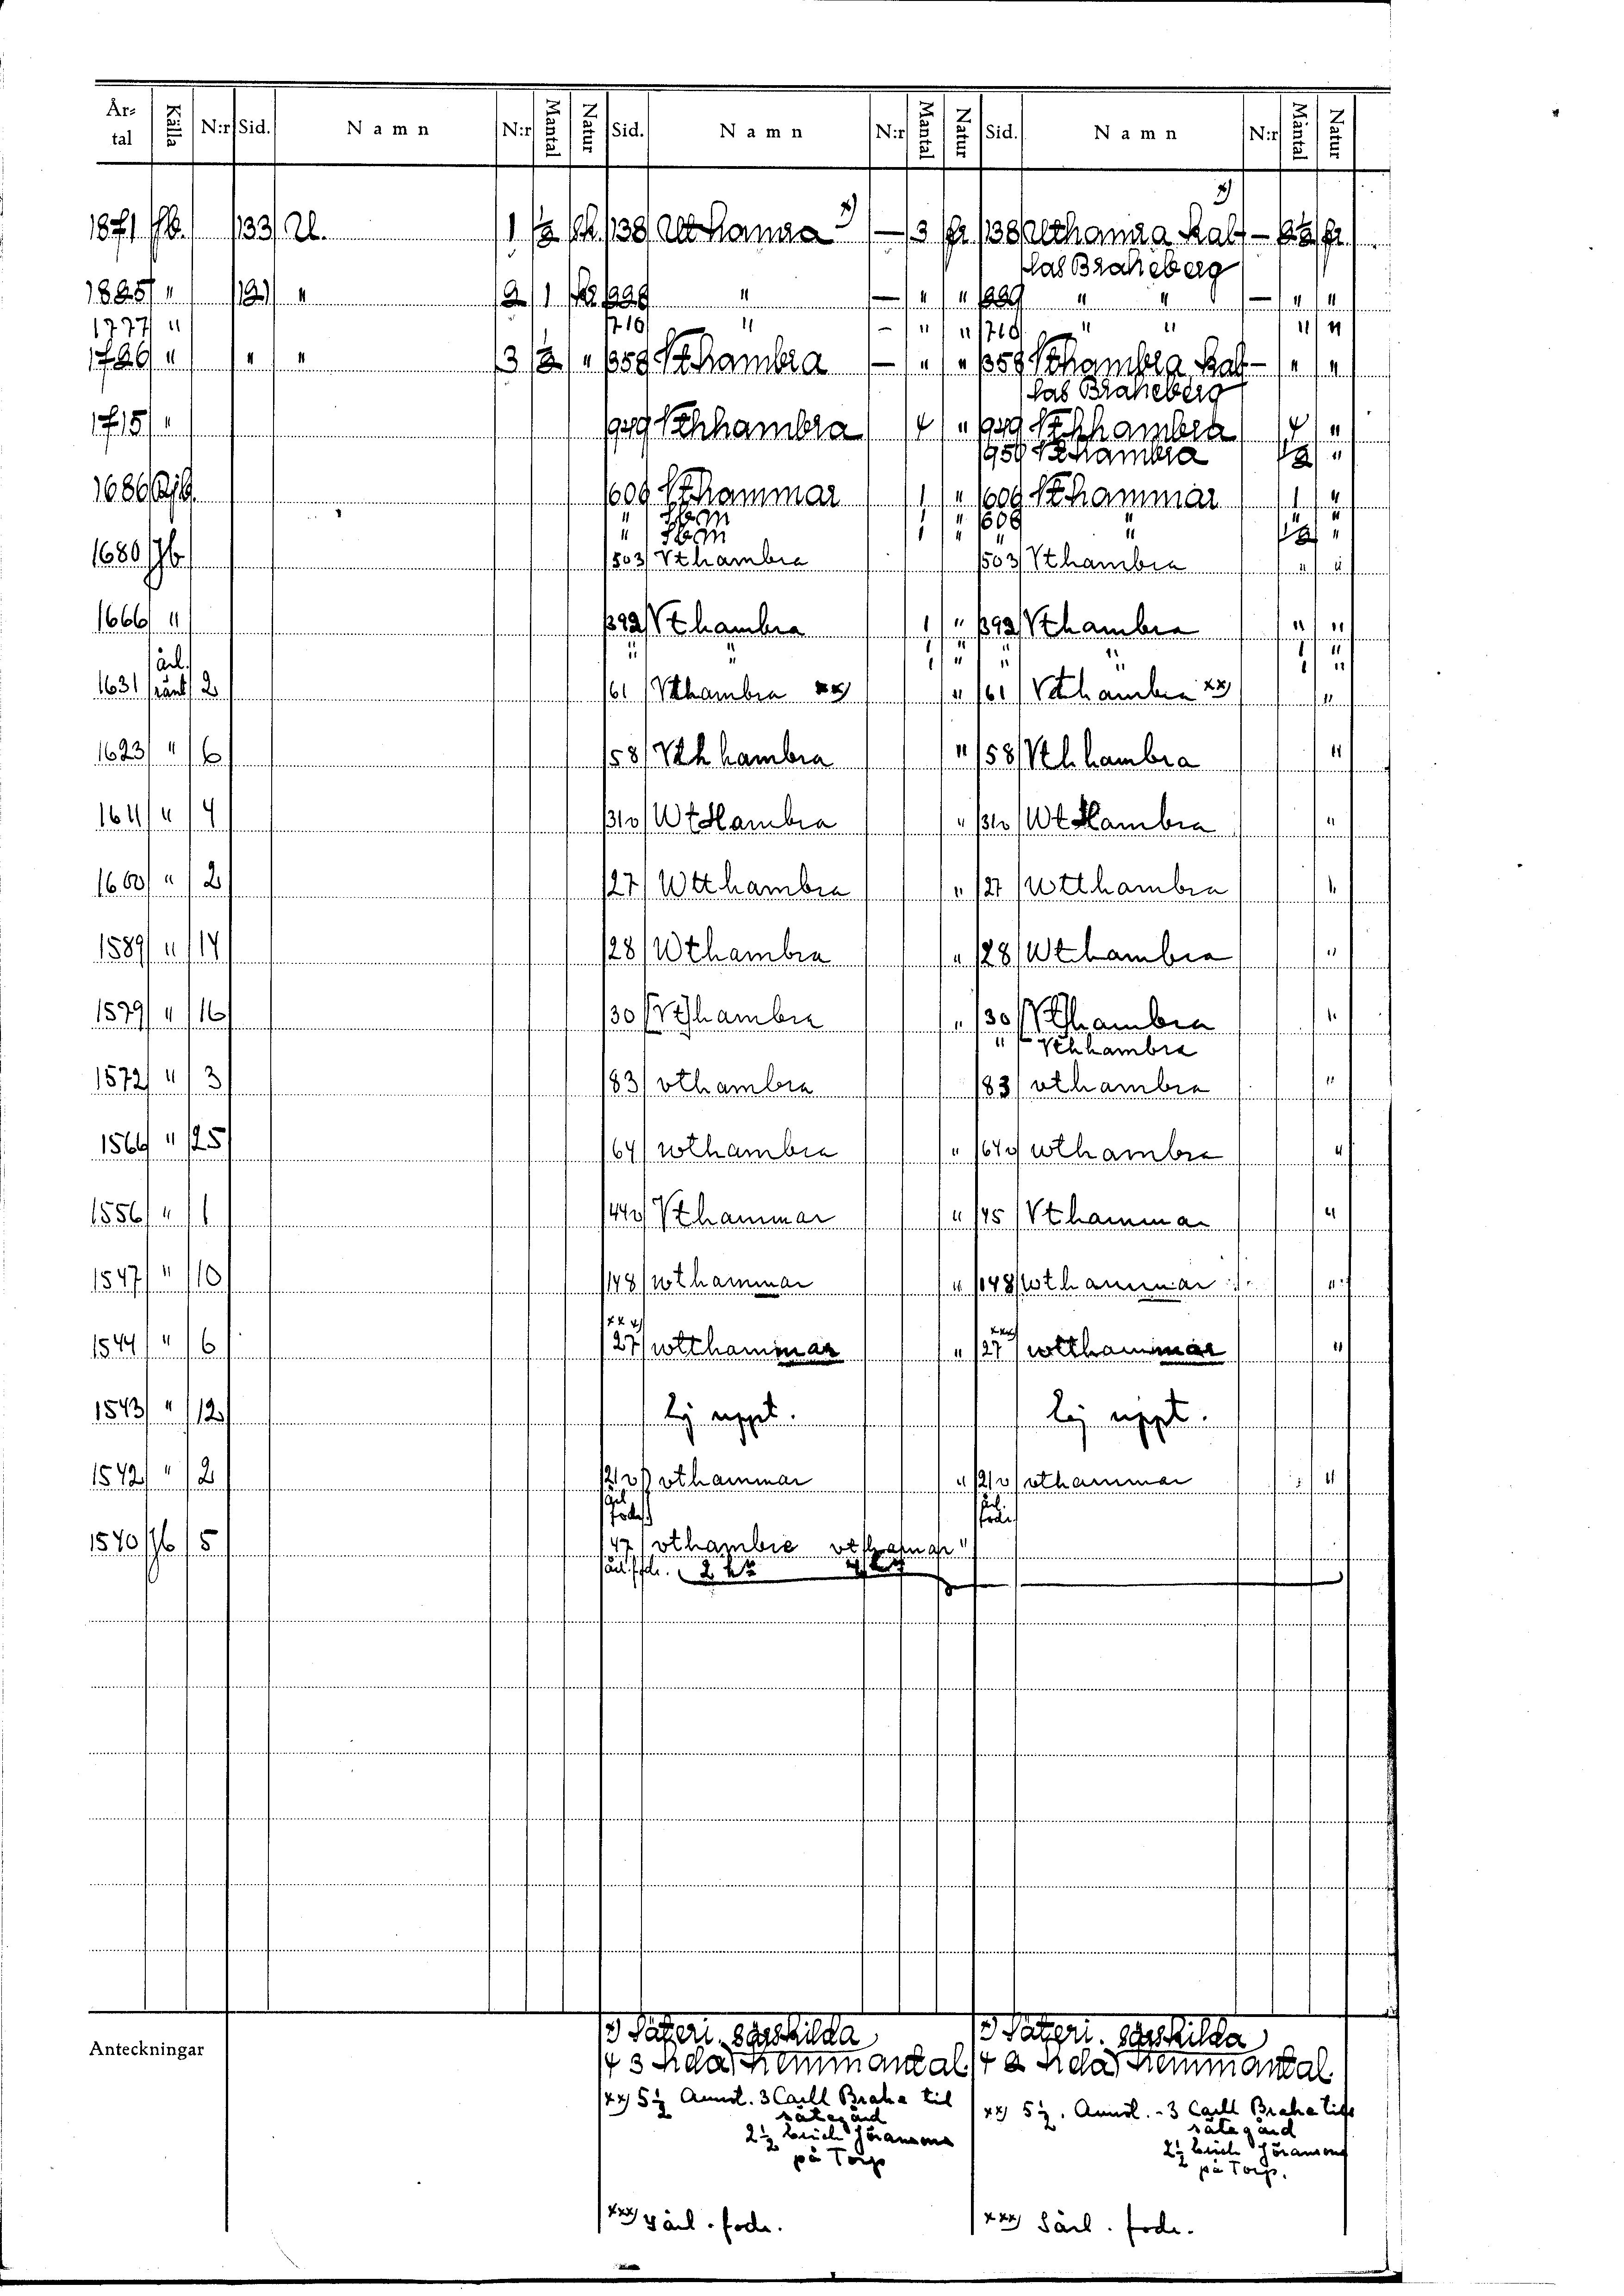 År-tal Källa N:r Sid. Namn N:r Mantal Natur Sid. Namn N:r Mantal Natur Sid. Namn N:r Mantal Natur
1871 Jb. 133 U. 1 1/2 Sk. 138 Uthamra x) — 3 fr. 138 Uthamra kal- — 2 1/2 fr.
las Braheberg
1825 " 121 " 2 1 " — " " " " — " "
1777 " 710 " — " " 710 " " " "
1726 " " " 3 1/2 " 358 Vthambra — " " 358 Vthambra kal- — " "
las Braheberg
1715 " 949 Vthhambra 4 " 949 Vthhambra 4 "
950 Vthambra 1/2 "
1686 Rjb. 606 Vthammar 1 " 606 Vthammar 1 "
" Ibm 1 " 606 " " "
" Ibm 1 " " " 1/2 "
1680 Jb 503 Vthambra 503 Vthambra " "
1666 " 392 Vthambra 1 " 392 Vthambra " "
" " 1 " " " 1 "
1 " " " 1 "
1631 årl. ränt 2 61 Vthambra xx) " 61 Vthambra xx) "
1623 " 6 58 Vthhambra " 58 Vthhambra "
1611 " 4 31v WtHambra " 31v WtHambra "
1600 " 2 27 Wtthambra " 27 Wtthambra "
1589 " 14 28 Wthambra " 28 Wthambra "
1579 " 16 30 [Vt]hambra " 30 [Vt]hambra "
" Vthhambra
1572 " 3 83 vthambra 83 vthambra "
1566 " 25 64 wthambra " 64v wthambra "
1556 " 1 44v Vthammar " 45 Vthammar "
1547 " 10 148 wthammar " 148 wthammar "
1544 " 6 xxx) 27 wtthammar " xxx) 27 wtthammar "
1543 " 12 Ej uppt. Ej uppt.
1542 " 2 21v vthammar " 21v vthammar "
årl. fodr. årl. fodr.
1540 Jb 5 47 vthambre vthamar "
årl. fodr.
Anteckningar
x) Säteri. särskilda
(+ 3 hela) hemmantal.
xx) 5 1/2 Annot. 3 Carll Brahe til
sätegård
2 1/2 Erich Jöransons
på Torp
xxx) Särl. fodr.
x) Säteri. särskilda
(+ 2 hela) hemmantal.
xx) 5 1/2. Annot. - 3 Carll Brahe till
sätegård
2 1/2 Erich Jöransons
på Torp.
xxx) Särl. fodr.